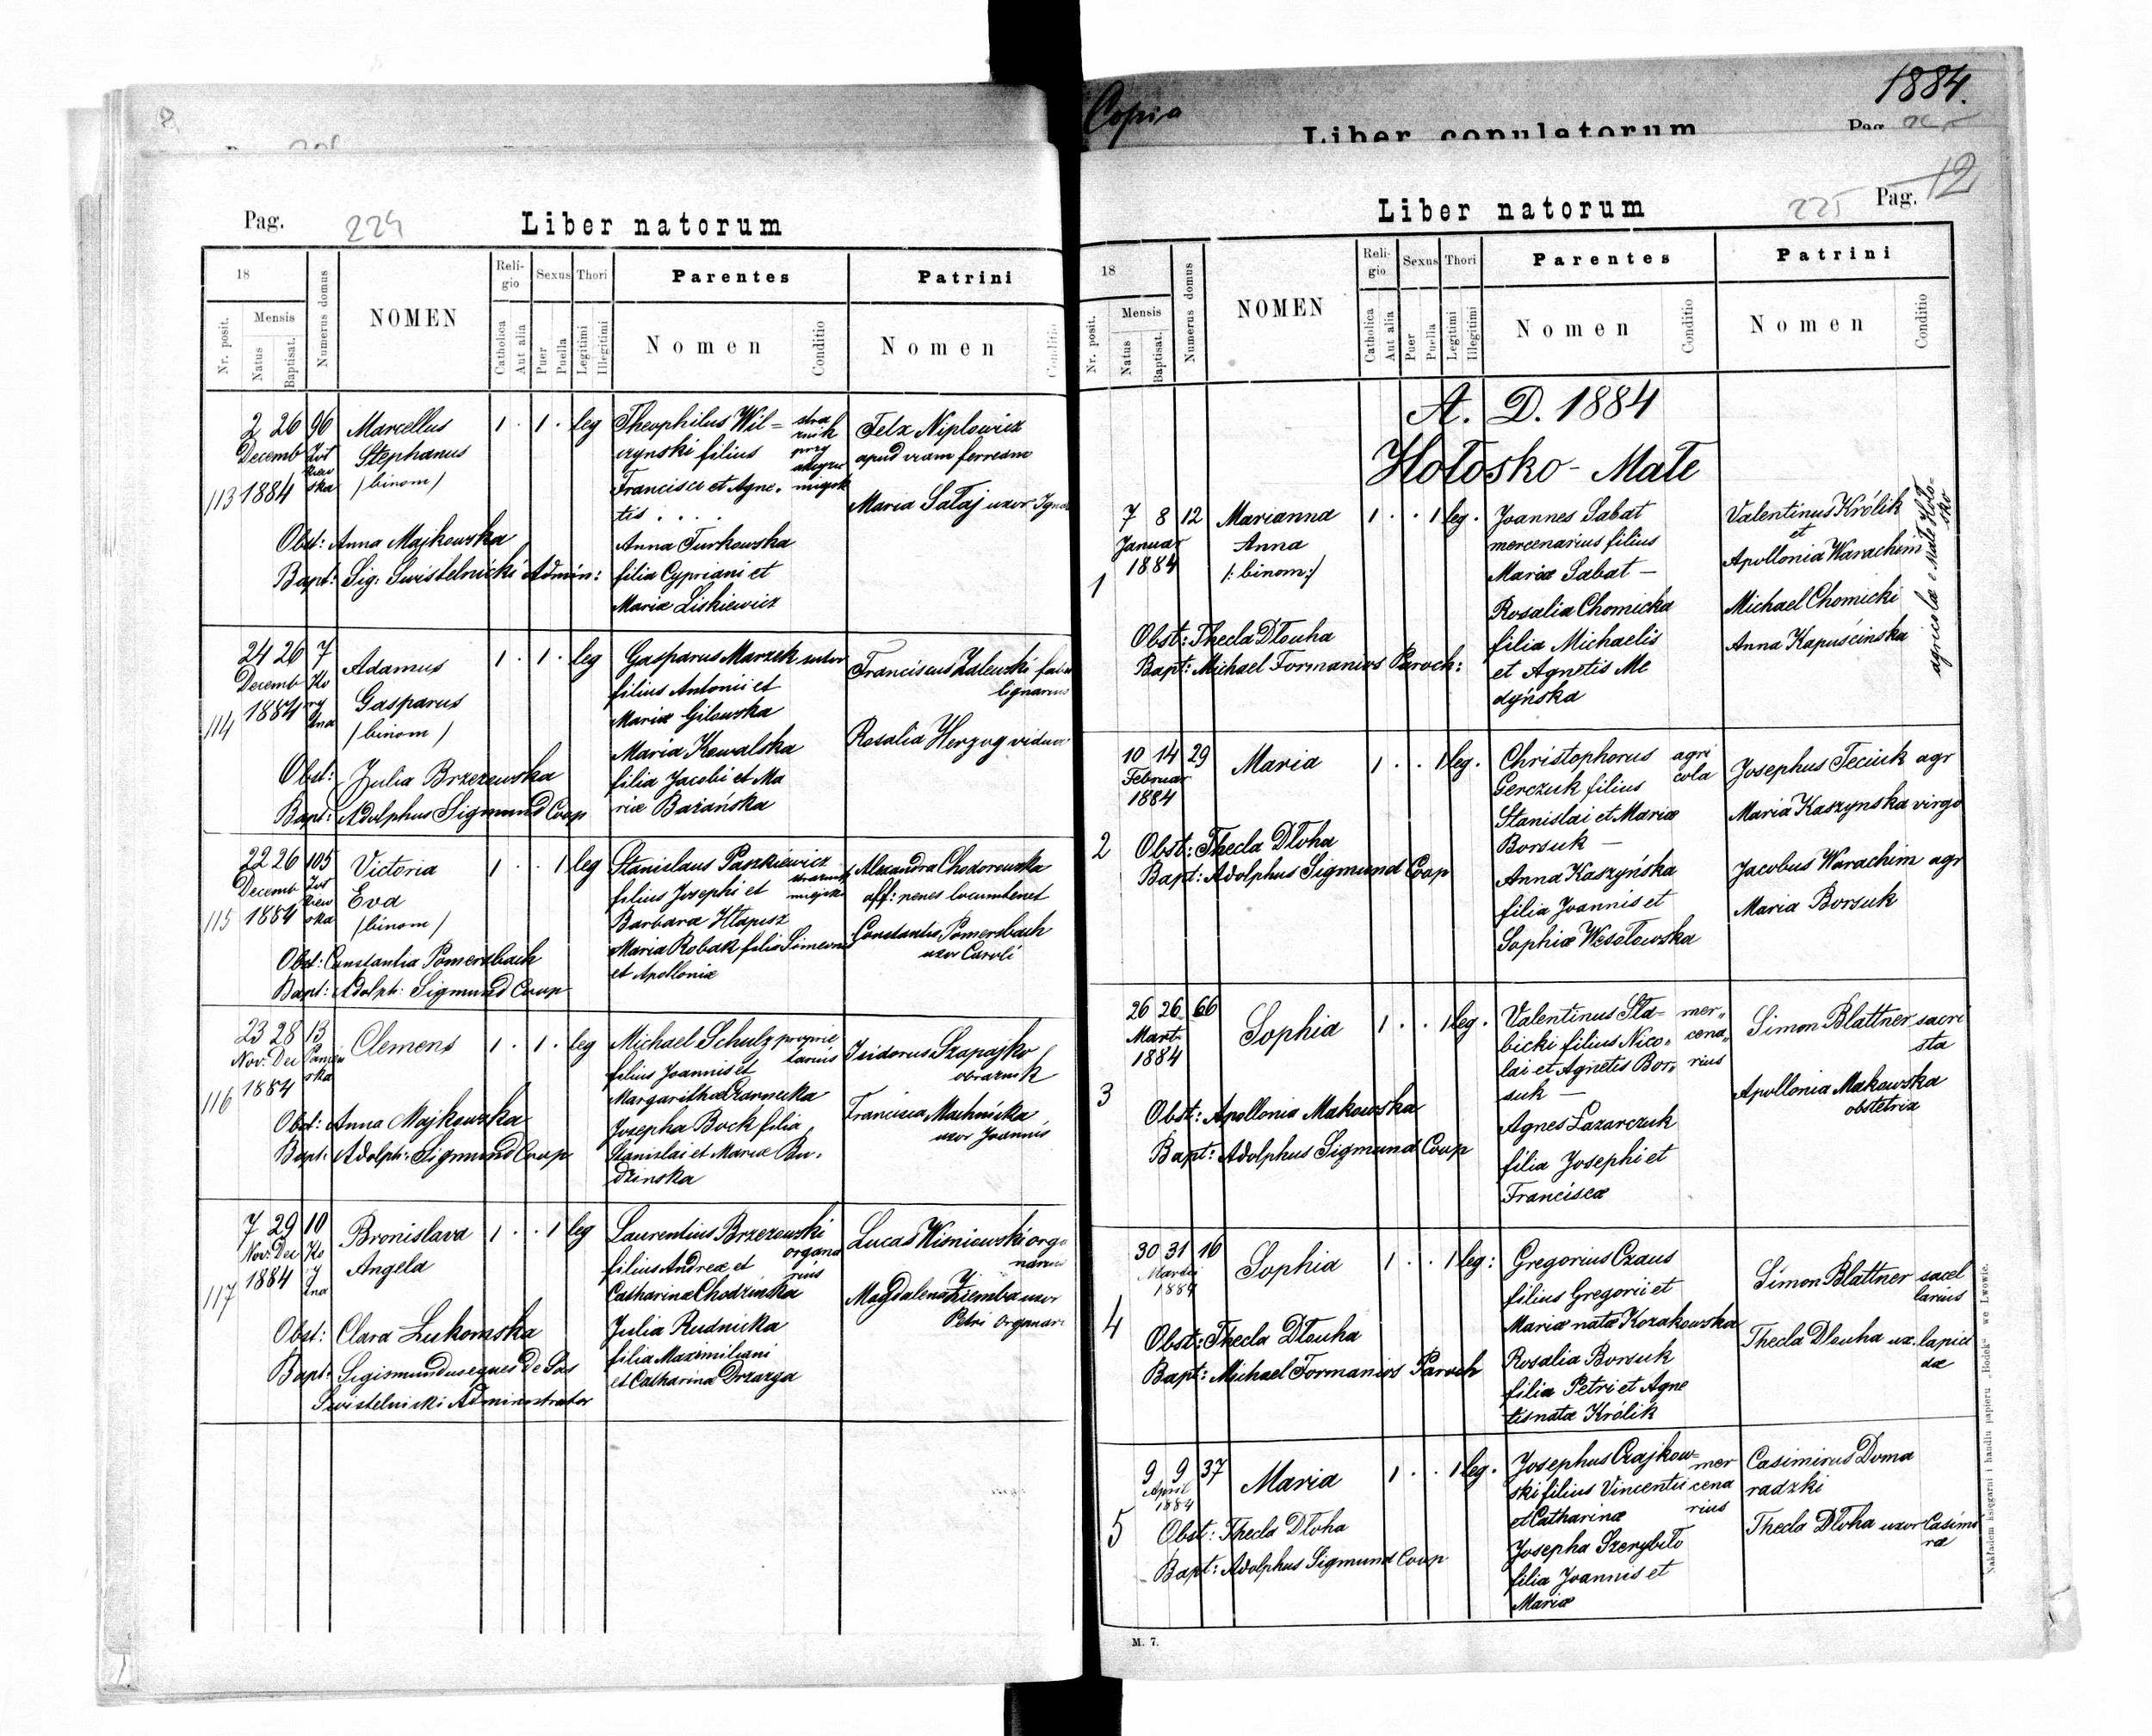 Copia
1884.
Liber copulatorum
Pag.
Pag. 224
Liber natorum
18
Nr. posit.
Mensis
Natus
Baptisat.
Numerus domus
NOMEN
Religio
Catholica
Aut alia
Sexus
Puer
Puella
Thori
Legitimi
Illegitimi
Parentes
Nomen
Conditio
Patrini
Nomen
Conditio
113
2 26 96
Decemb
1884
Marcellus
Stephanus
/binom/
1 . 1 . leg
Theophilus Wil=
czynski filius
Francisci et Agne,
tis . . . .
Anna Turkowska
filia Cypriani et
Mariæ Liskiewicz
Felx Niplowicz
apud viam ferream
Maria Sałaj uxor
Obst: Anna Majkowska
Bapt: Sig: Swistelnicki Admin:
114
24 26 7
Decemb
1884
Adamus
Gasparus
/binom/
1 . 1 . leg
Gasparus Marzek sutor
filius Antonii et
Mariæ Gilowska
Maria Kowalska
filia Jacobi et Ma
riæ Bazańska
Franciscus Zalewski
lignarius
Rosalia Herzog vidua
Obst: Julia Brzezewska
Bapt: Adolphus Sigmund Coop
115
22 26 105
Decemb
1884
Victoria
Eva
/binom/
1 . . 1 leg
Stanislaus Paszkiewicz
filius Josephi et
Barbara Hlapisz
Maria Robak filia Simeonis
et Apolloniæ
Alexandra Chodorowska
aff: penes locumtenet
Constantia Pomersbach
uxor Caroli
Obst: Constantia Pomersbach
Bapt: Adolph: Sigmund Coop
116
23 28 13
Nov. Dec
1884
Clemens
1 . 1 . leg
Michael Schulz proprie
tarius
filius Joannis et
Margaritha Czarnecka
Josepha Bock filia
Stanislai et Mariæ Bu,
dzinska
Isidorus Szapajko
Francisca Machnicka
uxor Joannis
Obst: Anna Majkowska
Bapt: Adolph: Sigmund Coop
117
7 29 10
Nov. Dec
1884
Bronislava
Angela
1 . . 1 leg
Laurentius Brzezowski
organa
rius
filius Andreæ et
Catharinæ Chodzinska
Julia Rudnicka
filia Maximiliani
et Catharinæ Drzazga
Lucas Wisniowski orga
narius
Magdalena Ziemba uxor
Petri organari
Obst: Clara Lukomska
Bapt: Sigismundus eques De Sas
Swistelnicki Administrator
12
Liber natorum
225 Pag.
18
Nr. posit.
Mensis
Natus
Baptisat.
Numerus domus
NOMEN
Religio
Catholica
Aut alia
Sexus
Puer
Puella
Thori
Legitimi
Illegitimi
Parentes
Nomen
Conditio
Patrini
Nomen
Conditio
A. D. 1884
Hołosko-Małe
1
7 8 12
Januar
1884
Marianna
Anna
/: binom:/
1 . . 1 leg.
Joannes Sabat
mercenarius filius
Mariæ Sabat —
Rosalia Chomicka
filia Michaelis
et Agnetis Me
dyńska
Valentinus Królik
et
Apollonia Warachim
Michael Chomicki
Anna Kapuścinska
agricolæ e Małe Hoło-
sko
Obst: Thecla Dłouha
Bapt: Michael Formanios Paroch:
2
10 14 29
Februar
1884
Maria
1 . . 1 leg.
Christophorus agri
cola
Gerczuk filius
Stanislai et Mariæ
Borsuk —
Anna Kaszyńska
filia Joannis et
Sophiæ Wesołowska
Josephus Teciuk agr
Maria Kaszynska virgo
Jacobus Warachim agr
Maria Borsuk
Obst: Thecla Dłoha
Bapt: Adolphus Sigmund Coop
3
26 26 66
Mart.
1884
Sophia
1 . . 1 leg.
Valentinus Sta= mer,,
bicki filius Nico,, cena,,
lai et Agnetis Bor,, rius
suk —
Agnes Lazarczuk
filia Josephi et
Franciscæ
Simon Blattner sacri
sta
Apollonia Makowska
obstetrix
Obst: Apollonia Makowska
Bapt: Adolphus Sigmund Coop
4
30 31 16
Martii
1884
Sophia
1 . . 1 leg:
Gregorius Czaus
filius Gregorii et
Mariæ natæ Kozakowska
Rosalia Borsuk
filia Petri et Agne
tis natæ Królik
Simon Blattner sacel
larius
Thecla Dlouha ux. lapici
dæ
Obst: Thecla Dłouha
Bapt: Michael Formanios Paroch
5
9 9 37
April
1884
Maria
1 . . 1 leg.
Josephus Czajkow= mer
ski filius Vincentii cena
et Catharinæ rius
Josepha Szczybiło
filia Joannis et
Mariæ
Casimirus Doma
radzki
Thecla Dłoha uxor Casimi
ræ
Obst: Thecla Dłoha
Bapt: Adolphus Sigmund Coop
M. 7.
Nakładem księgarni i handlu papieru „Bodek" we Lwowie.